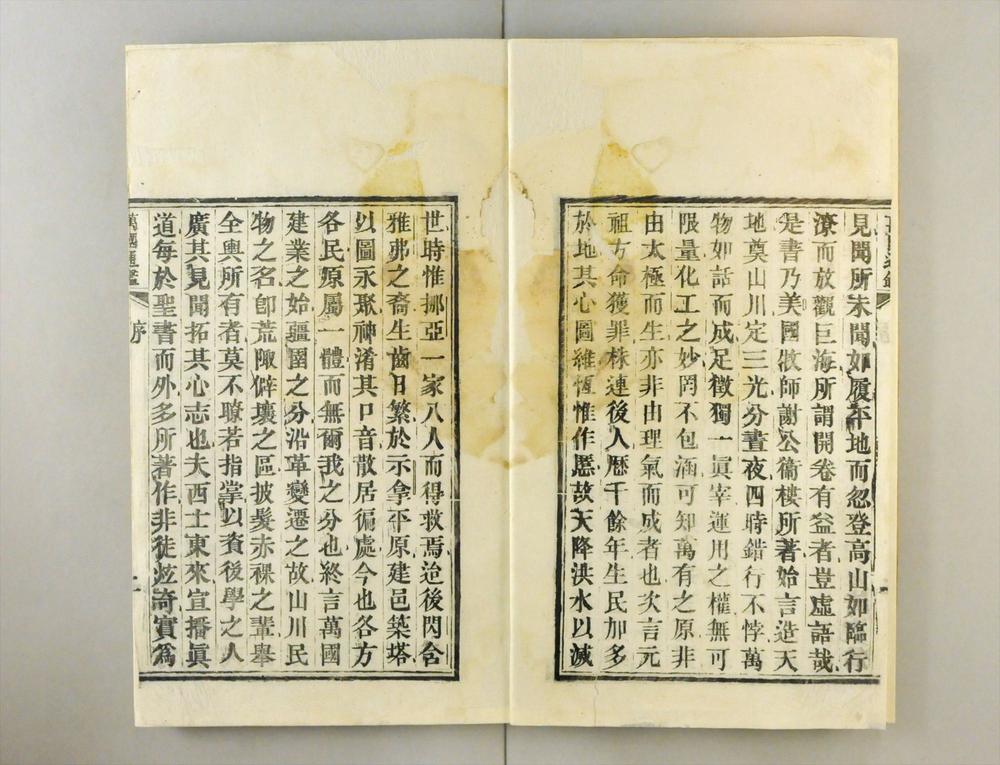 見聞所未聞如履平地而忽登高山如臨行
潦而放觀巨海所謂開卷有益者豈虛語哉
是書乃美國牧師謝公衞樓所著始言造天
地奠山川定三光分晝夜四時錯行不悖萬
物如話而成足徵獨一眞宰運用之權無可
限量化工之妙罔不包涵可知萬有之原非
由太極而生亦非由理氣而成者也次言元
祖方命獲罪株連後人歷千餘年生民加多
於地其心圖維恆惟作慝故天降洪水以滅
世時惟挪亞一家八人而得救焉迨後閃含
雅弗之裔生齒日繁於示拿平原建邑築塔
以圖永聚神淆其口音散居徧處今也各方
各民原屬一體而無爾我之分也終言萬國
建業之始疆圉之分沿革變遷之故山川民
物之名卽荒陬僻壤之區披髮赤裸之輩舉
全輿所有者莫不瞭若指掌以資後學之人
廣其見聞拓其心志也夫西士東來宣播眞
道每於聖書而外多所著作非徒炫奇實爲
萬國通鑑 序 二